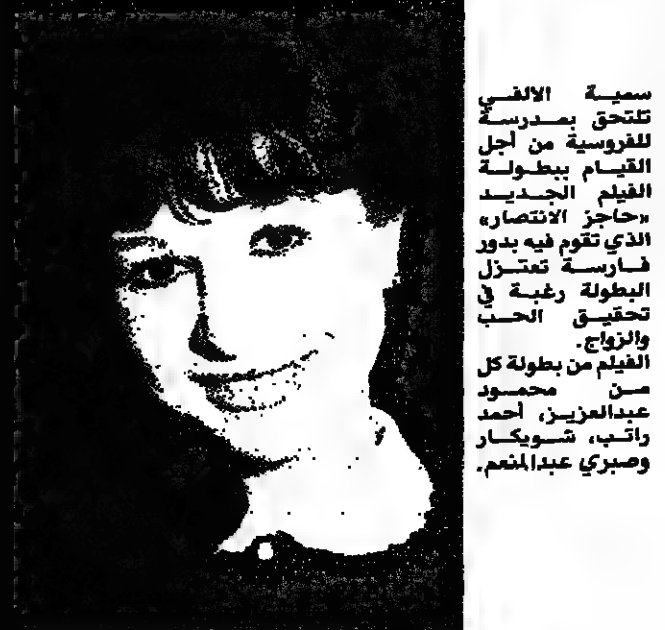 سميـة الالفـي
تلتحق بمـدرسـة
للفروسية من أجل
القيـام ببطـولـة
الفيلم الجـديـد
«حاجز الانتصار»
الذي تقوم فيه بدور
فـارسـة تعتـزل
البطولة رغبـة في
تحقيـق الحـب
والزواج.
الفيلم من بطولة كل
مـن محمـود
عبدالعزيـز، أحمد
راتـب، شـويكـار
وصبري عبدالمنعم.